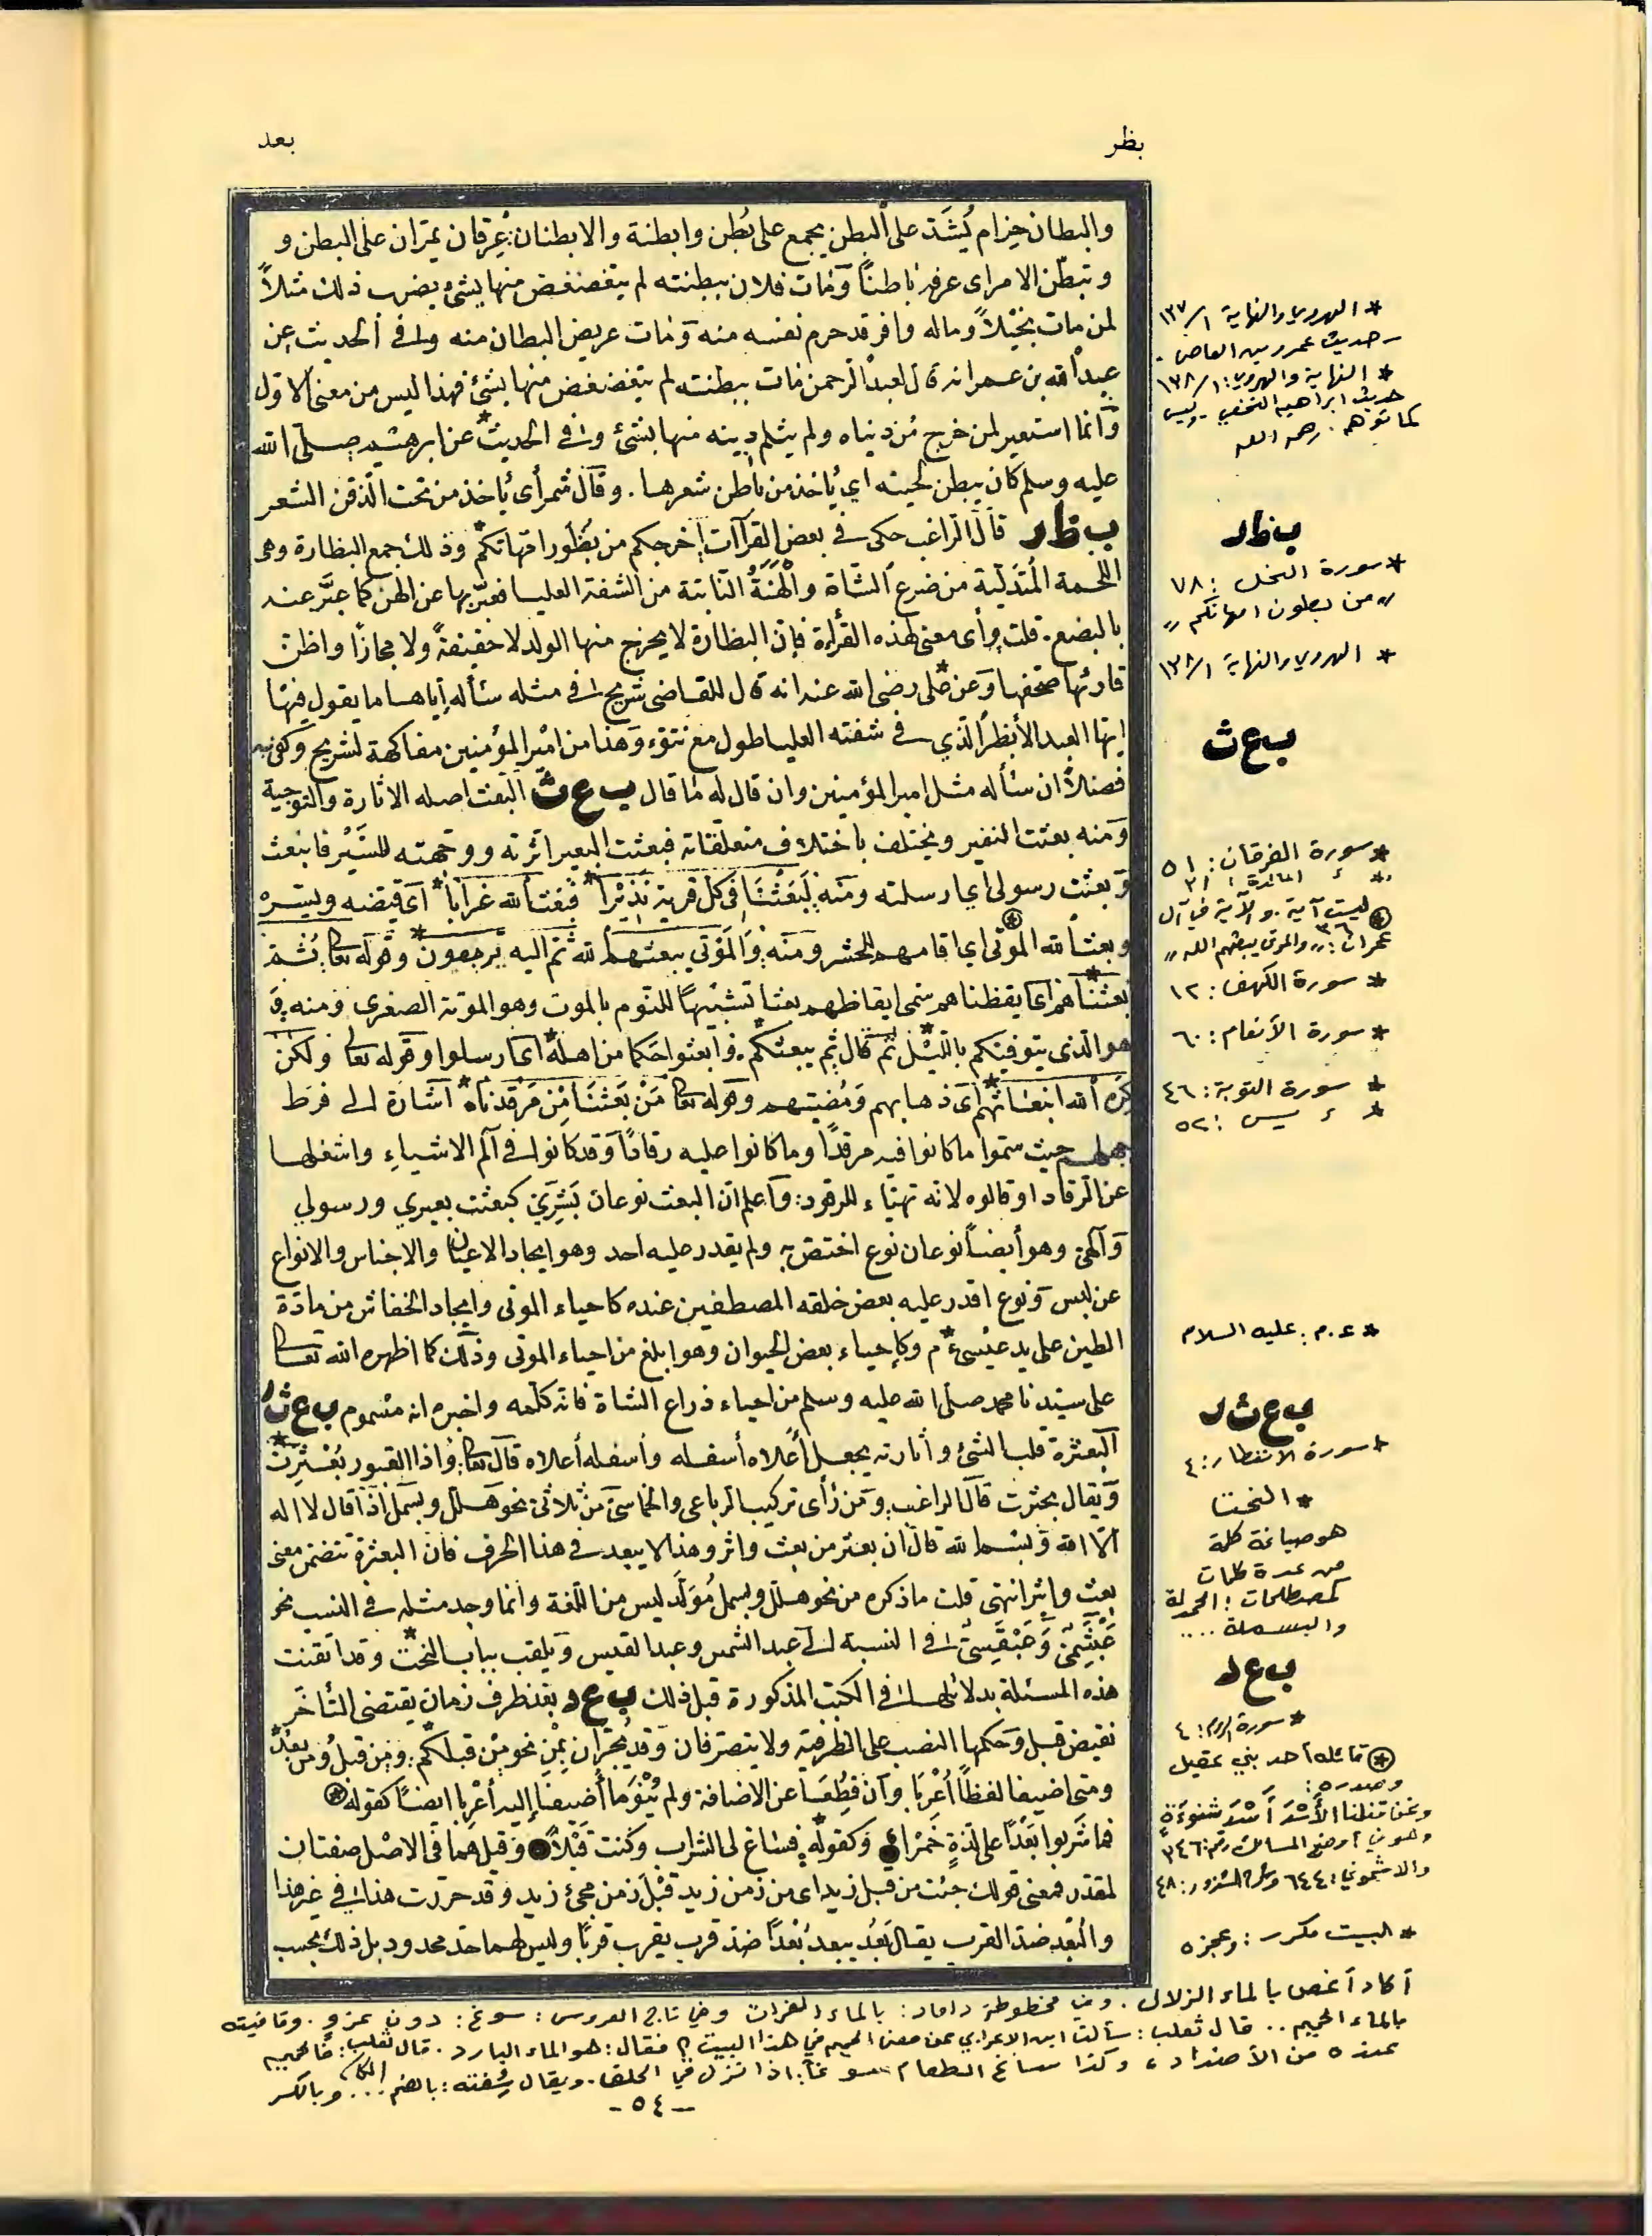 بظر
بعد
والبطان حزام يُشَدّ على البطن يجمع على بُطن وابطنة والابطنان: عِرقان يمرّان على البطن و
وتبطّن الامر اى عرف باطنًا ومات فلان ببطنته لم يتغضغض منها بشئ يضرب ذلك مثلاً
لمن مات بخيلاً وماله وافر قد حرم نفسه منه ومات عريض البطان منه وفى الحديث عن
عبد الله بن عمر انه قال لعبد الرحمن مات ببطنته لم يتغضغض منها بشئ فهذا ليس من معنى الاول
وانما استعير لمن خرج من دنياه ولم يثلم دينه منها بشئ وفى الحديث* عن ابرهيم صلى الله
عليه وسلم كان يبطن لحيته اي يأخذ من باطن شعرها. وقال شمر أى يأخذ من تحت الذقن الشعر
ب ظ ر قال الراغب حكى فى بعض القرآات اخرجكم من بُظُور امهاتكم* وذلك جمع البظارة وهى
اللحمة المتدلّية من ضرع الشاة والهَنَةُ الناتئة من الشفة العليا فعبّر بها عن الهن كما عبَّر عنه
بالبضع. قلت وأى معنى لهذه القرأة فإن البظارة لا يخرج منها الولد لا حقيقةً ولا مجازًا واظن
قارئها صحفها وعن علىّ* رضى الله عنه انه قال للقاضى شريح فى مثله سأله إياها ما يقول فيها
ايها العبد الأبظر الذي فى شفته العليا طول مع نتوء وهذا من امير المؤمنين مفاكهة لشريح وكفى به
فضلاً ان سأله مثل امير المؤمنين وان قال له ما قال ب ع ث البعث اصله الاثارة والتوجية
ومنه بعثت النفير ويختلف باختلاف متعلقاته فبعثت البعير اثرته ووجهته للسَّيْر فانبعث
وبعثت رسولى اي ارسلته ومنه لَبَعَثْنَا فى كل قرية نَذِيْرًا* فبعث الله غرابا* اى قيضه ويسّره
وبعث الله الموتى اي اقامهم للحشر ومنه والموتي يبعثهم الله ثم اليه يرجعون* وقوله تعا ثُمّ
بعثناهم* اى ايقظناهم سمى ايقاظهم بعثا تشبيهًا للنوم بالموت وهو الموتة الصغرى ومنه و
هو الذى يتوفيكم بالليل* ثم قال ثم يبعثكم. فابعثوا حكما من اهله* اى ارسلوا وقوله تعا ولكن
كَره الله انبعاثهم* اى ذهابهم ومُضيّهم وقوله تعا مَنْ بَعَثَنَا مِن مَرقدنا* اشارة الى فرط
جهلهم حيث سمّوا ما كانوا فيه مرقدًا وما كانوا عليه رقادًا وقد كانوا فى آلم الاشياء واشغلها
عن الرقاد او قالوه لانه تهيّاء للرقود: واعلم ان البعث نوعان بَشَرِيّ كبعثت بعيري ورسولي
وآلهىّ وهو أيضًا نوعان نوع اختصّ به ولم يقدر عليه احد وهو ايجاد الاعيان والاجناس والانواع
عن ليس ونوع اقدر عليه بعض خلقه المصطفين عنده كاحياء الموتى وايجاد الخفاش من مادّة
الطين على يد عيسى ع م* وكإحياء بعض الحيوان وهو ابلغ من احياء الموتى وذلك كما اظهره الله تعا
على سيدنا محمد صلى الله عليه وسلم من احياء ذراع الشاة فانه كلّمه واخبره انه مسموم ب ع ث ر
البعثرة قلب الشئ وأثارته بجعل أعلاه أسفله وأسفله أعلاه قال تعا واذا القبور بُعْثِرَتْ*
ويقال بحثرت قال الراغب ومن رأى تركيب الرباعى والخماسىّ من ثلاثىّ نحو هلّل وبسمل اذا قال لا اله
الا الله وبسم الله قال ان بعثر من بعث واثر وهذا لا يبعد فى هذا الحرف فان البعثرة تتضمن معنى
بعث واثر انتهى قلت ما ذكره من نحو هلّل وبسمل مُوَلَّد ليس من اللغة وانما وجد مثله فى النسب نحو
عَبْشَمِىّ وعَبْقَسىّ فى النسبة الى عبد الشمس وعبد القيس ويلقب بباب النحت* وقد اتقنت
هذه المسئلة بدلائلها فى الكتب المذكورة قبل ذلك ب ع د بعد ظرف زمان يقتضى التأخر
نقيض قبل وحكمها النصب على الظرفية ولا يتصرفان وقد يُجرّان بمن نحو مِن قبلكم* ومن قبلُ ومن بعدُ*
ومتى اضيفا لفظًا أُعْربا وان قُطِعَا عن الاضافة ولم يُنْوَ ما أضيفا إليه أعربا ايضًا كقوله
فما شربوا بَعْدًا على لذّةٍ خَمْرا وكقوله* فساغ لى الشراب وكنت قَبْلاً وقيل هما فى الاصل صفتان
لمقدّر فمعنى قولك جئت من قبل زيد اى من زمن زيد قبْل زمن مجئ زيد وقد حررت هذا فى غير هذا
والبُعد ضد القرب يقال بَعُد يبعد بُعْدًا ضد قرب يقرب قربًا وليس لهما حد محدود بل ذلك بحسب
* الهروي والنهاية ١٣٧/١
- حديث عمرو بن العاص -
* النهاية والهروي: ١٣٨/١
حديث ابراهيم النخعي - وليس
كما توهم. رحمه الله
ب ظ ر
* سورة النحل: ٧٨
"من بطون امهاتكم"
* الهروي والنهاية ١٣٨/١
ب ع ث
* سورة الفرقان: ٥١
* المائدة: ٣١
ليست آية. والآية في آل
عمران: ٣٦ "والموتى يبعثهم الله"
* سورة الكهف: ١٢
* سورة الأنعام: ٦٠
* سورة التوبة: ٤٦
* يس: ٥٢
* ع.م: عليه السلام
ب ع ث ر
* سورة الانفطار: ٤
* النحت
هو صياغة كلمة
من عدة كلمات
كمصطلحات: الحمدلة
والبسملة ....
ب ع د
* سورة الروم: ٤
قائله أحد بني عقيل
وصدره:
ونحن قتلنا الأُسْدَ أُسْدَ شنوءةٍ
وهو في أوضح المسالك رقم: ٣٤٦
والاشموني: ٦٤٤
* البيت مكرر: وعجزه
أكاد أغص بالماء الزلال. وفي مخطوطة داماد: بالماء الفرات وفي تاج العروس: سوغ: دون عزو. وقافيته
بالماء الحميم.. قال ثعلب: سألت ابن الاعرابي عن معنى الحميم في هذا البيت؟ فقال: هو الماء البارد. قال ثعلب: فالحميم
عنده من الأضداد، وكذا ساغ الطعام سوغا: اذا نزل في الحلق. ويقال سُغته: بالضم ... وبالكسر
- ٥٤ -